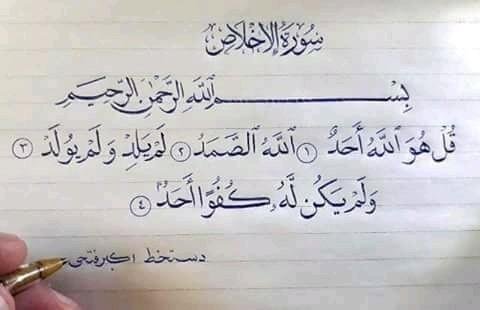 سُورَةُ الْإِخْلَاصِ
بِسْمِ اللَّهِ الرَّحْمَٰنِ الرَّحِيمِ
قُلْ هُوَ اللَّهُ أَحَدٌ ١ اللَّهُ الصَّمَدُ ٢ لَمْ يَلِدْ وَلَمْ يُولَدْ ٣
وَلَمْ يَكُن لَّهُ كُفُوًا أَحَدٌ ٤
دستخط اکبر فتحی